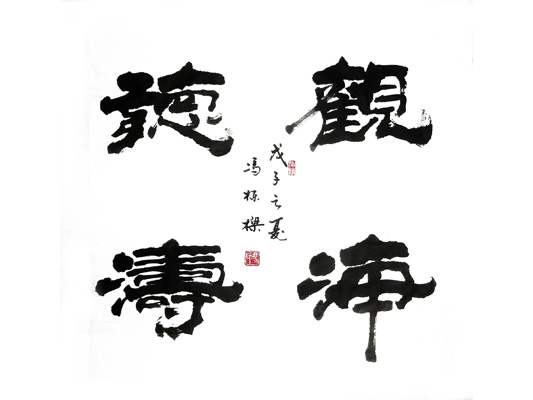 觀海
聽濤
戊子之夏
馮栋樑